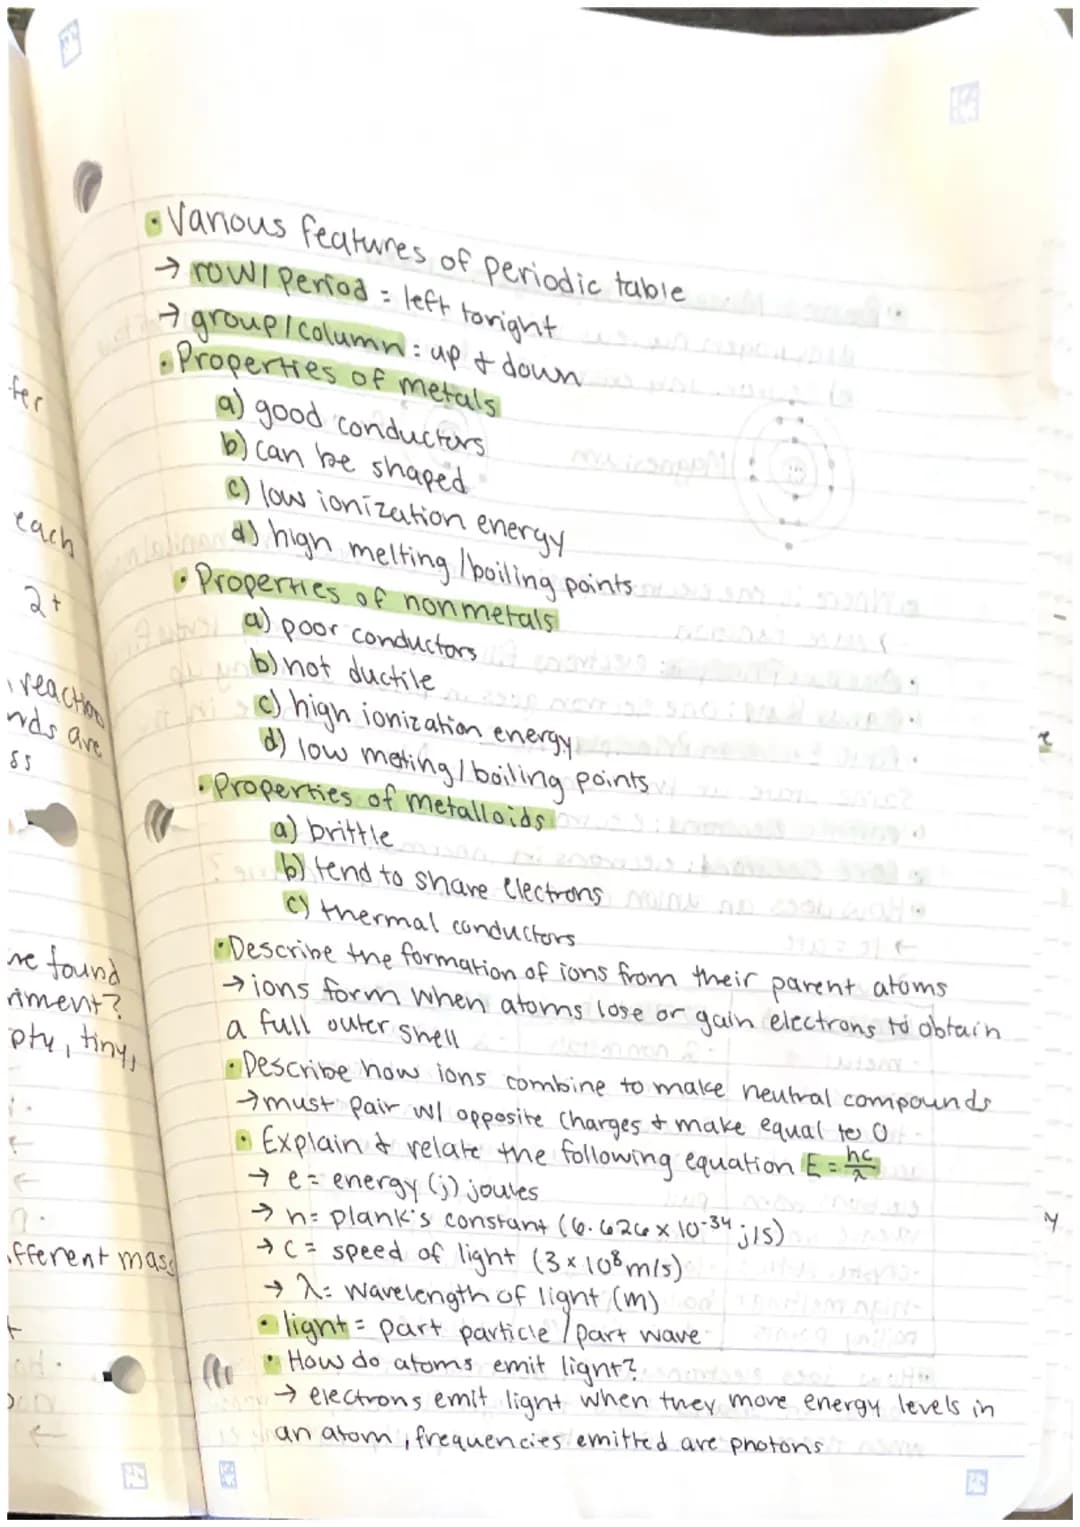 • Various features of periodic table
→ row/period = left to right
→ group/column: up & down
• Properties of metals
a) good conductors
b) can be shaped
c) low ionization energy
d) high melting/boiling points
• Properties of nonmetals
a) poor conductors
b) not ductile
c) high ionization energy
d) low meting/boiling points
• Properties of metalloids
a) brittle
b) tend to share electrons
c) thermal conductors
• Describe the formation of ions from their parent atoms
→ ions form when atoms lose or gain electrons to obtain
a full outer shell
• Describe how ions combine to make neutral compounds
→ must pair w/ opposite charges & make equal to 0
• Explain & relate the following equation E = hc/λ
→ e = energy (j) joules
→ h = plank's constant (6.626 x 10⁻³⁴ j/s)
→ c = speed of light (3 x 10⁸ m/s)
→ λ = wavelength of light (m)
• light = part particle / part wave
• How do atoms emit light?
→ electrons emit light when they move energy levels in
an atom, frequencies emitted are photons
fer
each
2+
reaction
nds are
ss
re found
nment?
pty, tiny,
fferent mass